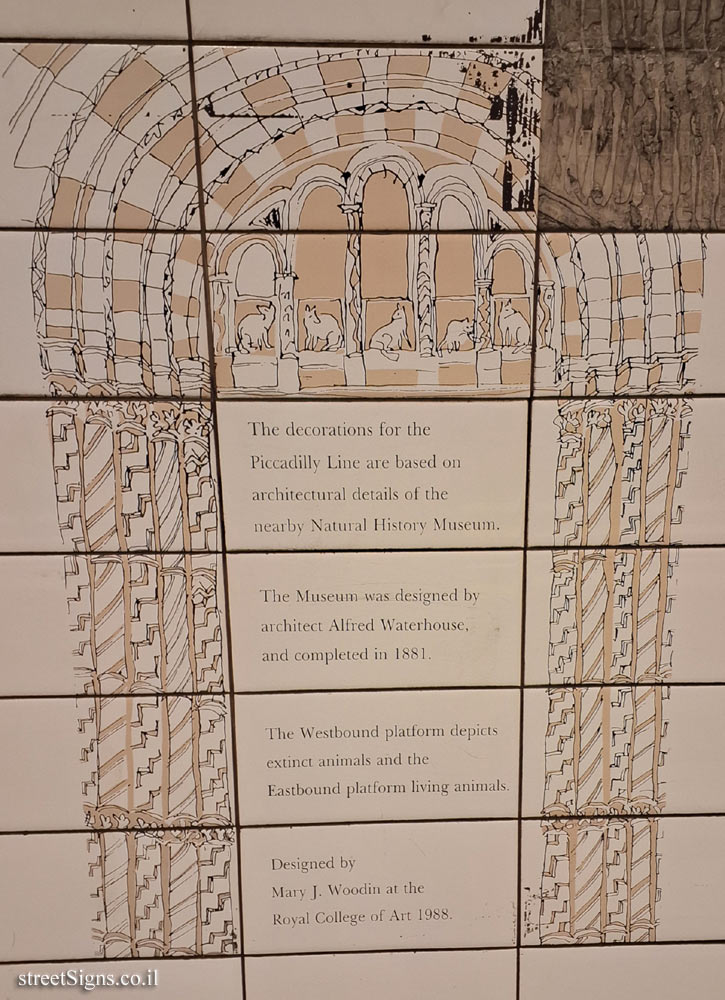 The decorations for the
Piccadilly Line are based on
architectural details of the
nearby Natural History Museum.
The Museum was designed by
architect Alfred Waterhouse,
and completed in 1881.
The Westbound platform depicts
extinct animals and the
Eastbound platform living animals.
Designed by
Mary J. Woodin at the
Royal College of Art 1988.
streetSigns.co.il